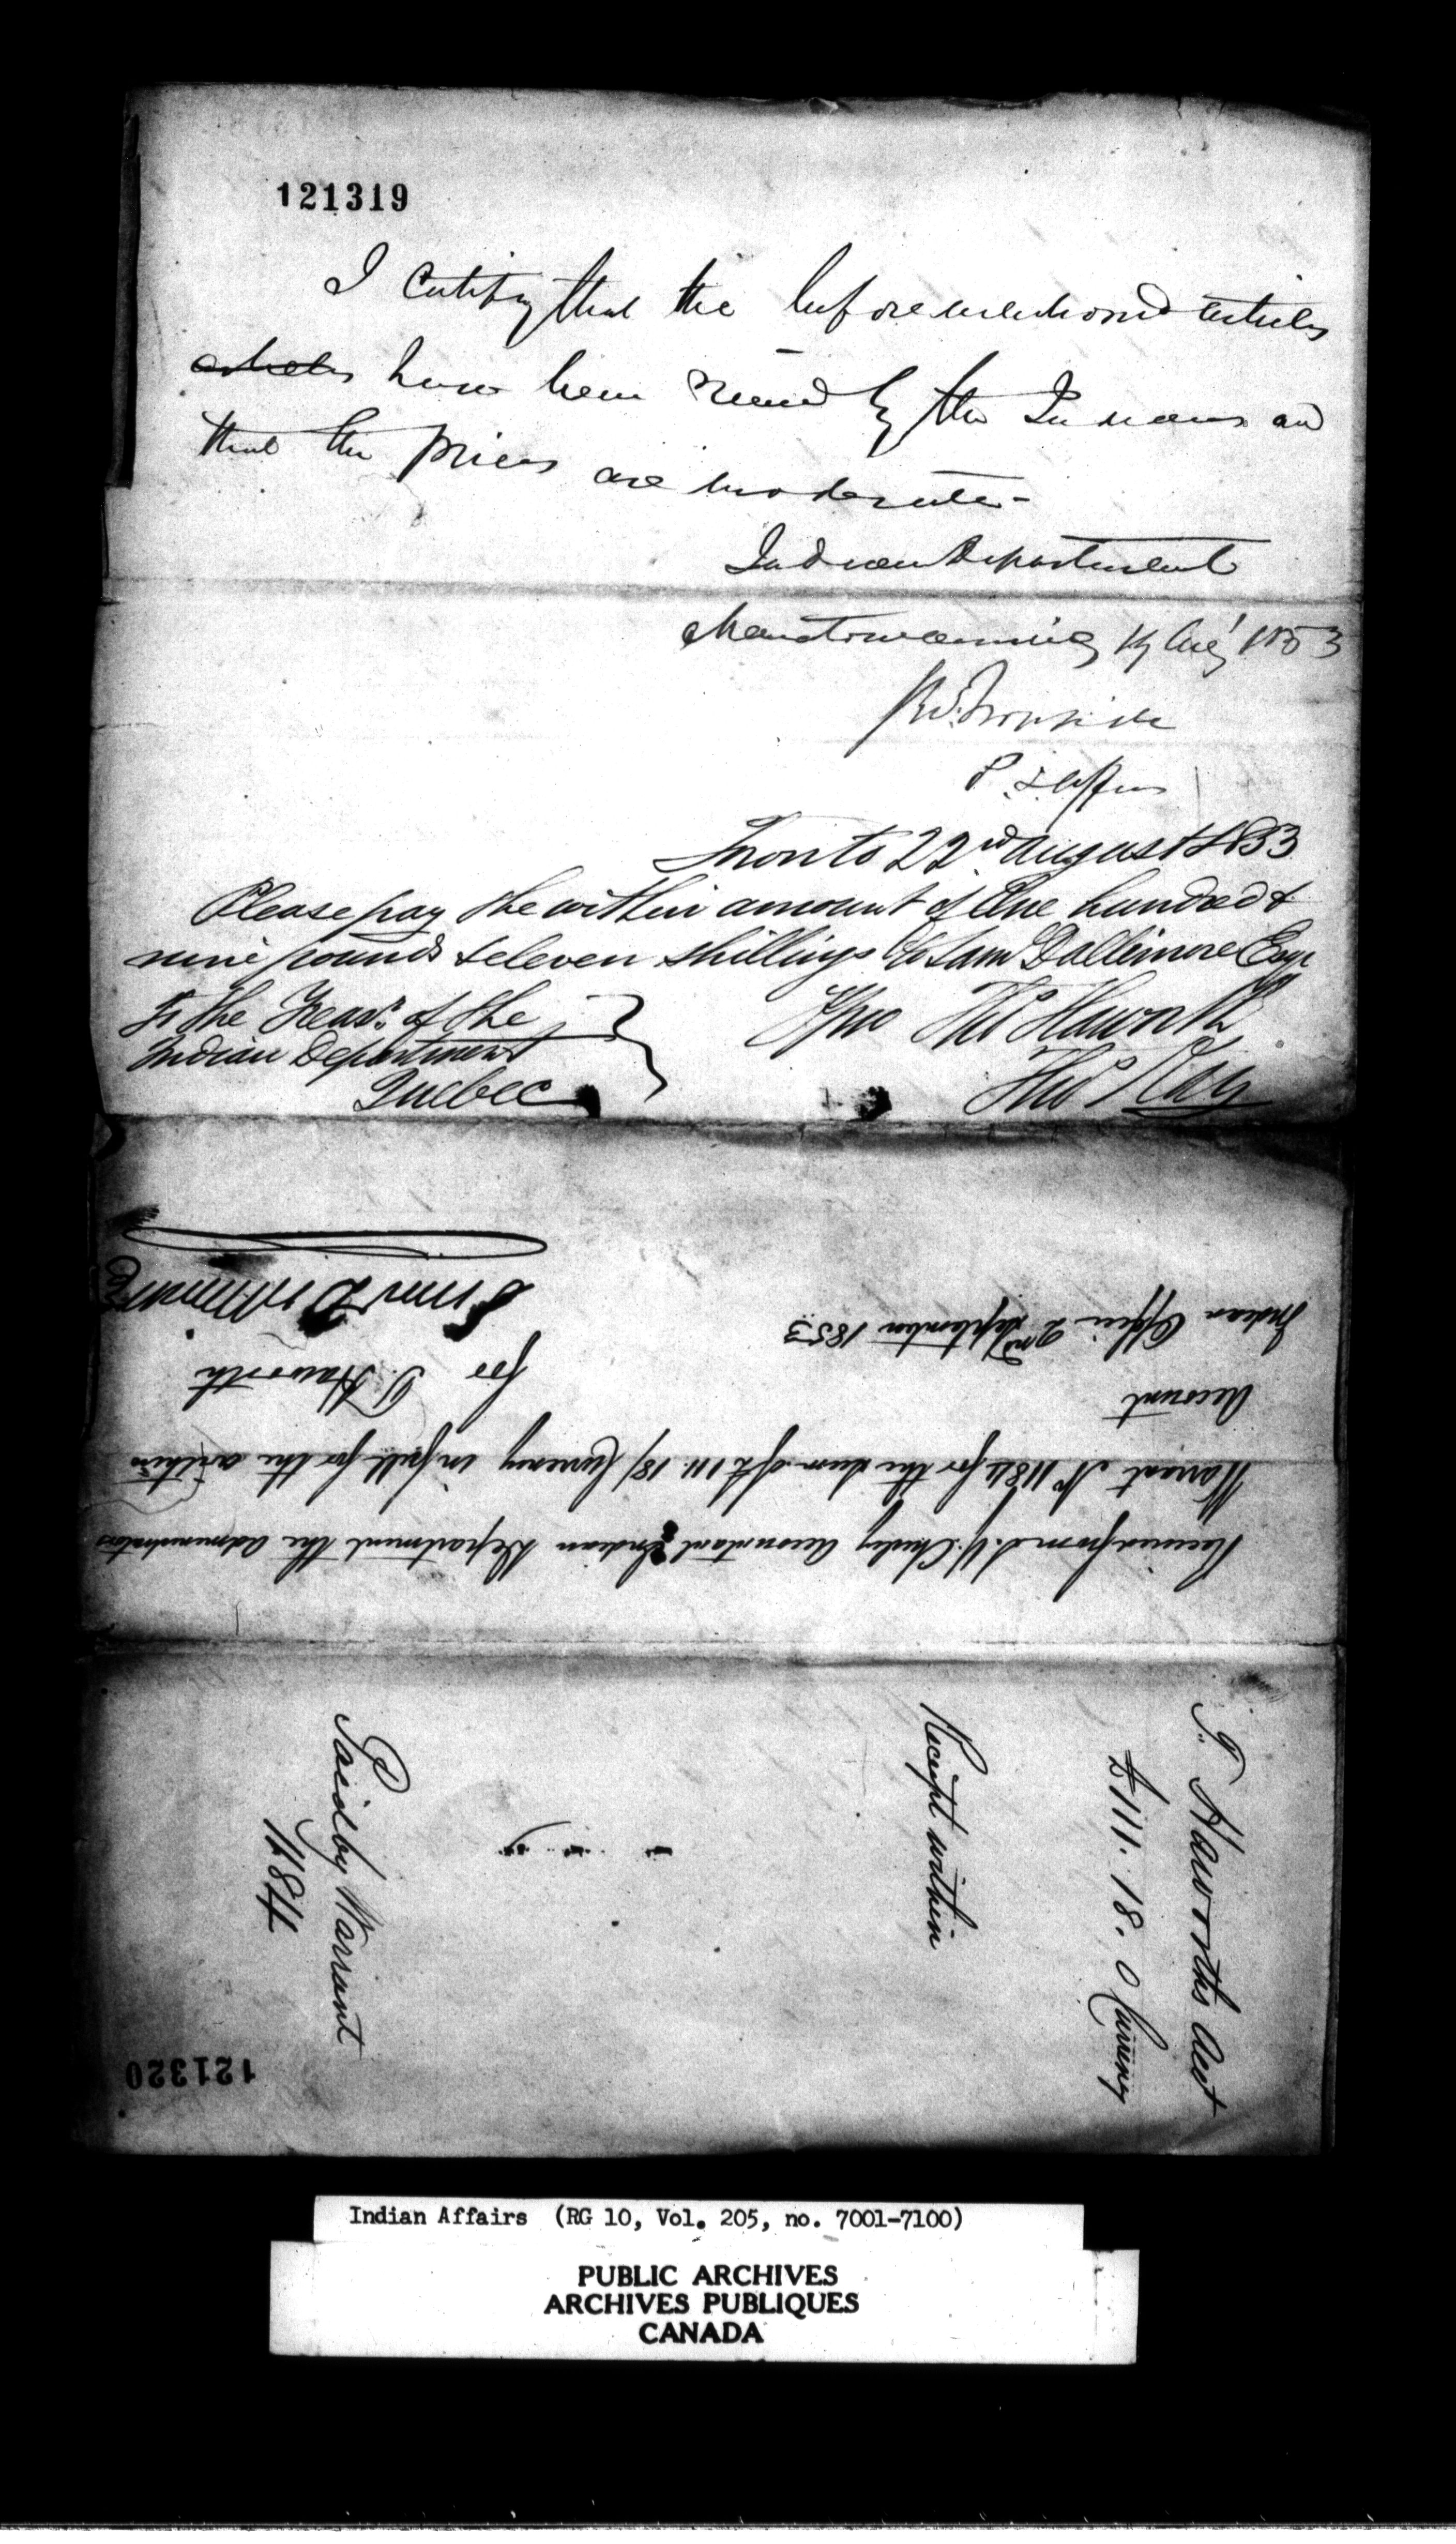 121319
I Certify that the beforementioned articles
articles have been received by the Indians and
that the prices are moderate -
Indian Department
Manitowaning 17 Augt 1853
Ironside
Toronto 22nd August 1853
Please pay the within amount of One hundred &
nine pounds & eleven shillings to Saml Dallimore Esqr
To the Treasr. of the
Indian Department
Quebec
Thos Haworth
Thos Kay
Received from S. Y. Chesley Accountant Indian Department the Administrators
Warrant No 1184 for the sum of £111. 18/ Currency in full for the within
Account
for T. Haworth
Indian Office 2nd September 1853
Saml Dallimore
T. Haworths Acct
£111. 18. 0 Currency
Receipt within
Paid by Warrant
1184
121320
Indian Affairs (RG 10, Vol. 205, no. 7001-7100)
PUBLIC ARCHIVES
ARCHIVES PUBLIQUES
CANADA